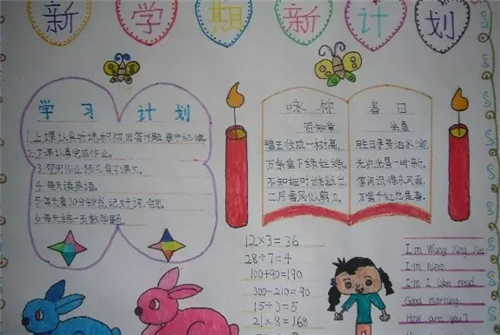 新学期新计划
学习计划
1.上课认真听讲,积极回答问题,遵守纪律。
2.下课认真完成作业。
4.每天读英语。
5.每天看30分钟书,记好词、佳句。
6.每天练一五数学题。
咏柳
贺知章
碧玉妆成一树高,
万条垂下绿丝绦。
不知细叶谁裁出,
二月春风似剪刀。
春日
朱熹
胜日寻芳泗水滨,
无边光景一时新。
等闲识得东风面,
万紫千红总是春。
12×3=36
28÷7=4
100+90=190
300-210=90
15÷3=5
21×8=168
I'm Wang Xing Xie
I'm nine.
I'm I like read.
Good morning.
How are you?